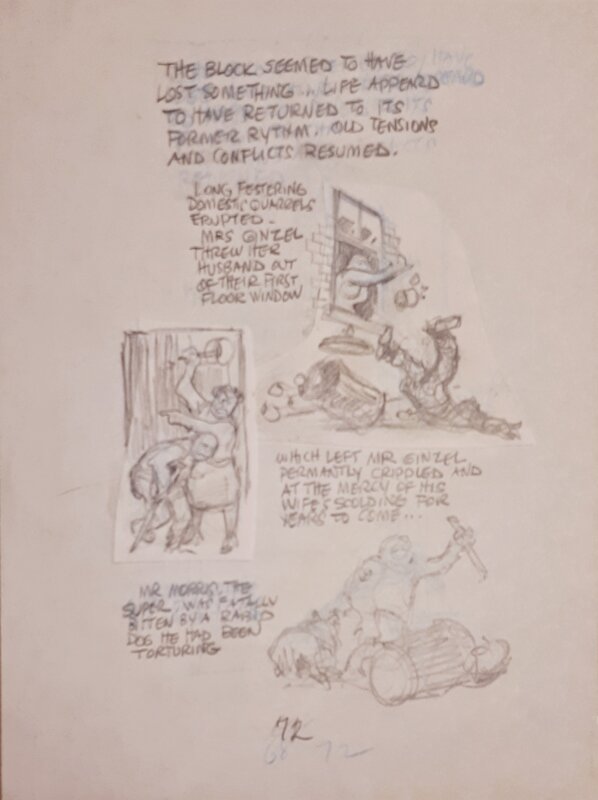 THE BLOCK SEEMED TO HAVE
LOST SOMETHING. LIFE APPEARD
TO HAVE RETURNED TO ITS
FORMER RYTHM. OLD TENSIONS
AND CONFLICTS RESUMED.
LONG FESTERING
DOMESTIC QUARRELS
ERUPTED -
MRS GINZEL
THREW HER
HUSBAND OUT
OF THEIR FIRST
FLOOR WINDOW
WHICH LEFT MR GINZEL
PERMANTLY CRIPPLED AND
AT THE MERCY OF HIS
WIFE'S SCOLDING FOR
YEARS TO COME...
MR MORRIS, THE
SUPER, WAS FATALLY
BITTEN BY A RABID
DOG HE HAD BEEN
TORTURING
72
72